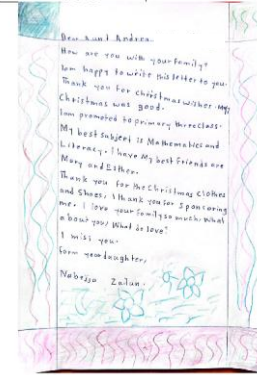 Dear Aunt Andrea.
How are you with your family?
Iam happy to write this letter to you.
Thank you for Christmas wishes. My
Christmas was good.
Iam promoted to primary three class.
My best subject is Mathematics and
Literacy. I have My best friends are
Mary and Esther.
Thank you for the Christmas clothes
and Shoes, I thank you for Sponsoring
me. I love your family so much. What
about you? What do love?
I miss you.
Form your daughter,
Zailan.